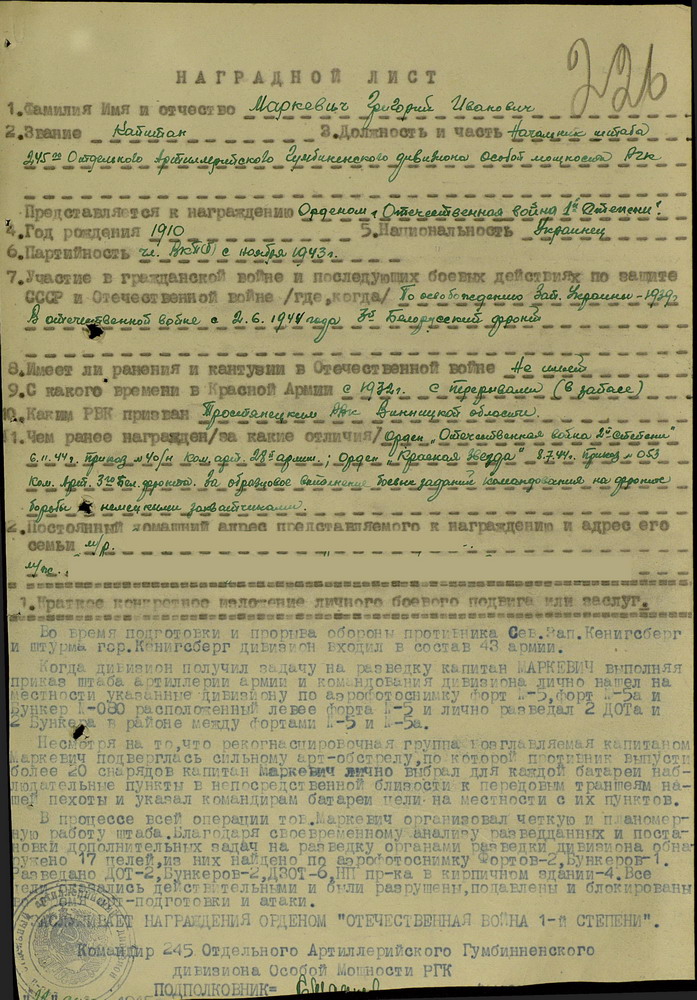 226
НАГРАДНОЙ ЛИСТ
1.Фамилия Имя и отчество Маркевич Григорий Иванович
2.Звание Капитан 3.Должность и часть Начальник штаба
245го Отдельного Артиллерийского Гумбиненского дивизиона особой мощности РГК
Представляется к награждению Орденом „Отечественная война 1й Степени".
4.Год рождения 1910 5.Национальность Украинец
6.Партийность чл. ВКП(б) с ноября 1943г.
7.Участие в гражданской войне и последующих боевых действиях по защите
СССР и Отечественной войне /где,когда/ По освобождению Зап. Украины - 1939г
В отечественной войне с 2.6.1944 года 3й Белорусский фронт
8.Имеет ли ранения и кантузии в Отечественной войне Не имеет
9.С какого времени в Красной Армии с 1932г. с перерывами (в запасе)
10.Каким РВК призван Тростанецким РВК Винницкой области.
11.Чем ранее награжден/за какие отличия/ Орден „Отечественная война 2й Степени"
6.11.44г. приказ №40/н Ком. арт. 28й армии.; Орден „Красная звезда" 8.7.44г. приказ № 053
Ком. Арт. 3го Бел. фронта. За образцовое выполнение боевых заданий командования на фронте
борьбы немецкими захватчиками.
2.Постоянный домашний адрес представляемого к награждению и адрес его
семьи
1.Краткое конкретное изложение личного боевого подвига или заслуг.
Во время подготовки и прорыва обороны противника Сев.Зап.Кенигсберг
и штурма гор.Кенигсберг дивизион входил в состав 43 армии.
Когда дивизион получил задачу на разведку капитан МАРКЕВИЧ выполняя
приказ штаба артиллерии армии и командования дивизиона лично нашел на
местности указанные дивизиону по аэрофотоснимку форт №-5,форт №-5а и
Бункер №-080 расположенный левее форта №-5 и лично разведал 2 ДОТа и
2 Бункера в районе между фортами №-5 и №-5а.
Несмотря на то,что рекогнасцировочная группа возглавляемая капитаном
Маркевич подверглась сильному арт-обстрелу,по которой противник выпустил
более 20 снарядов капитан Маркевич лично выбрал для каждой батареи наб-
людательные пункты в непосредственной близости к передовым траншеям на-
шей пехоты и указал командирам батареи цели на местности с их пунктов.
В процессе всей операции тов.Маркевич организовал четкую и планомер-
ную работу штаба.Благодаря своевременному анализу разведданных и поста-
новки дополнительных задач на разведку органами разведки дивизиона обна-
ружено 17 целей,из них найдено по аэрофотоснимку Фортов-2,Бункеров-1.
Разведано ДОТ-2,Бункеров-2,ДЗОТ-6,НП пр-ка в кирпичном здании-4.Все
цели оказались действительными и были разрушены,подавлены и блокированы
арт-подготовки и атаки.
ЗАСЛУЖИВАЕТ НАГРАЖДЕНИЯ ОРДЕНОМ "ОТЕЧЕСТВЕННАЯ ВОЙНА 1-й СТЕПЕНИ".
Командир 245 Отдельного Артиллерийского Гумбинненского
дивизиона Особой Мощности РГК
ПОДПОЛКОВНИК=